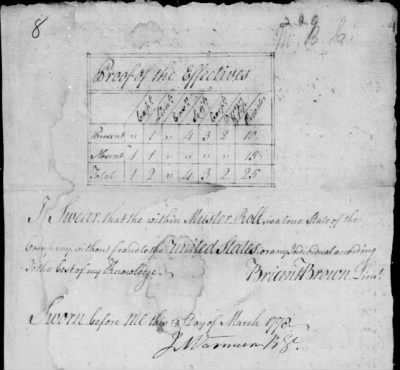 8
299
M. B. &
Proof of the Effectives
Capt Lieut Ensn Serjt Corpl D & Fifs Privates
Present " 1 " 4 3 2 10
1 1 " " " " 15
Total 1 2 " 4 3 2 25
I Swear that the within Muster Roll is a true State of the
Company without fraud to the United States or any Individual according
To the best of my Knowledge.
Brown Lieut.
Sworn before me this Day of March 1778.